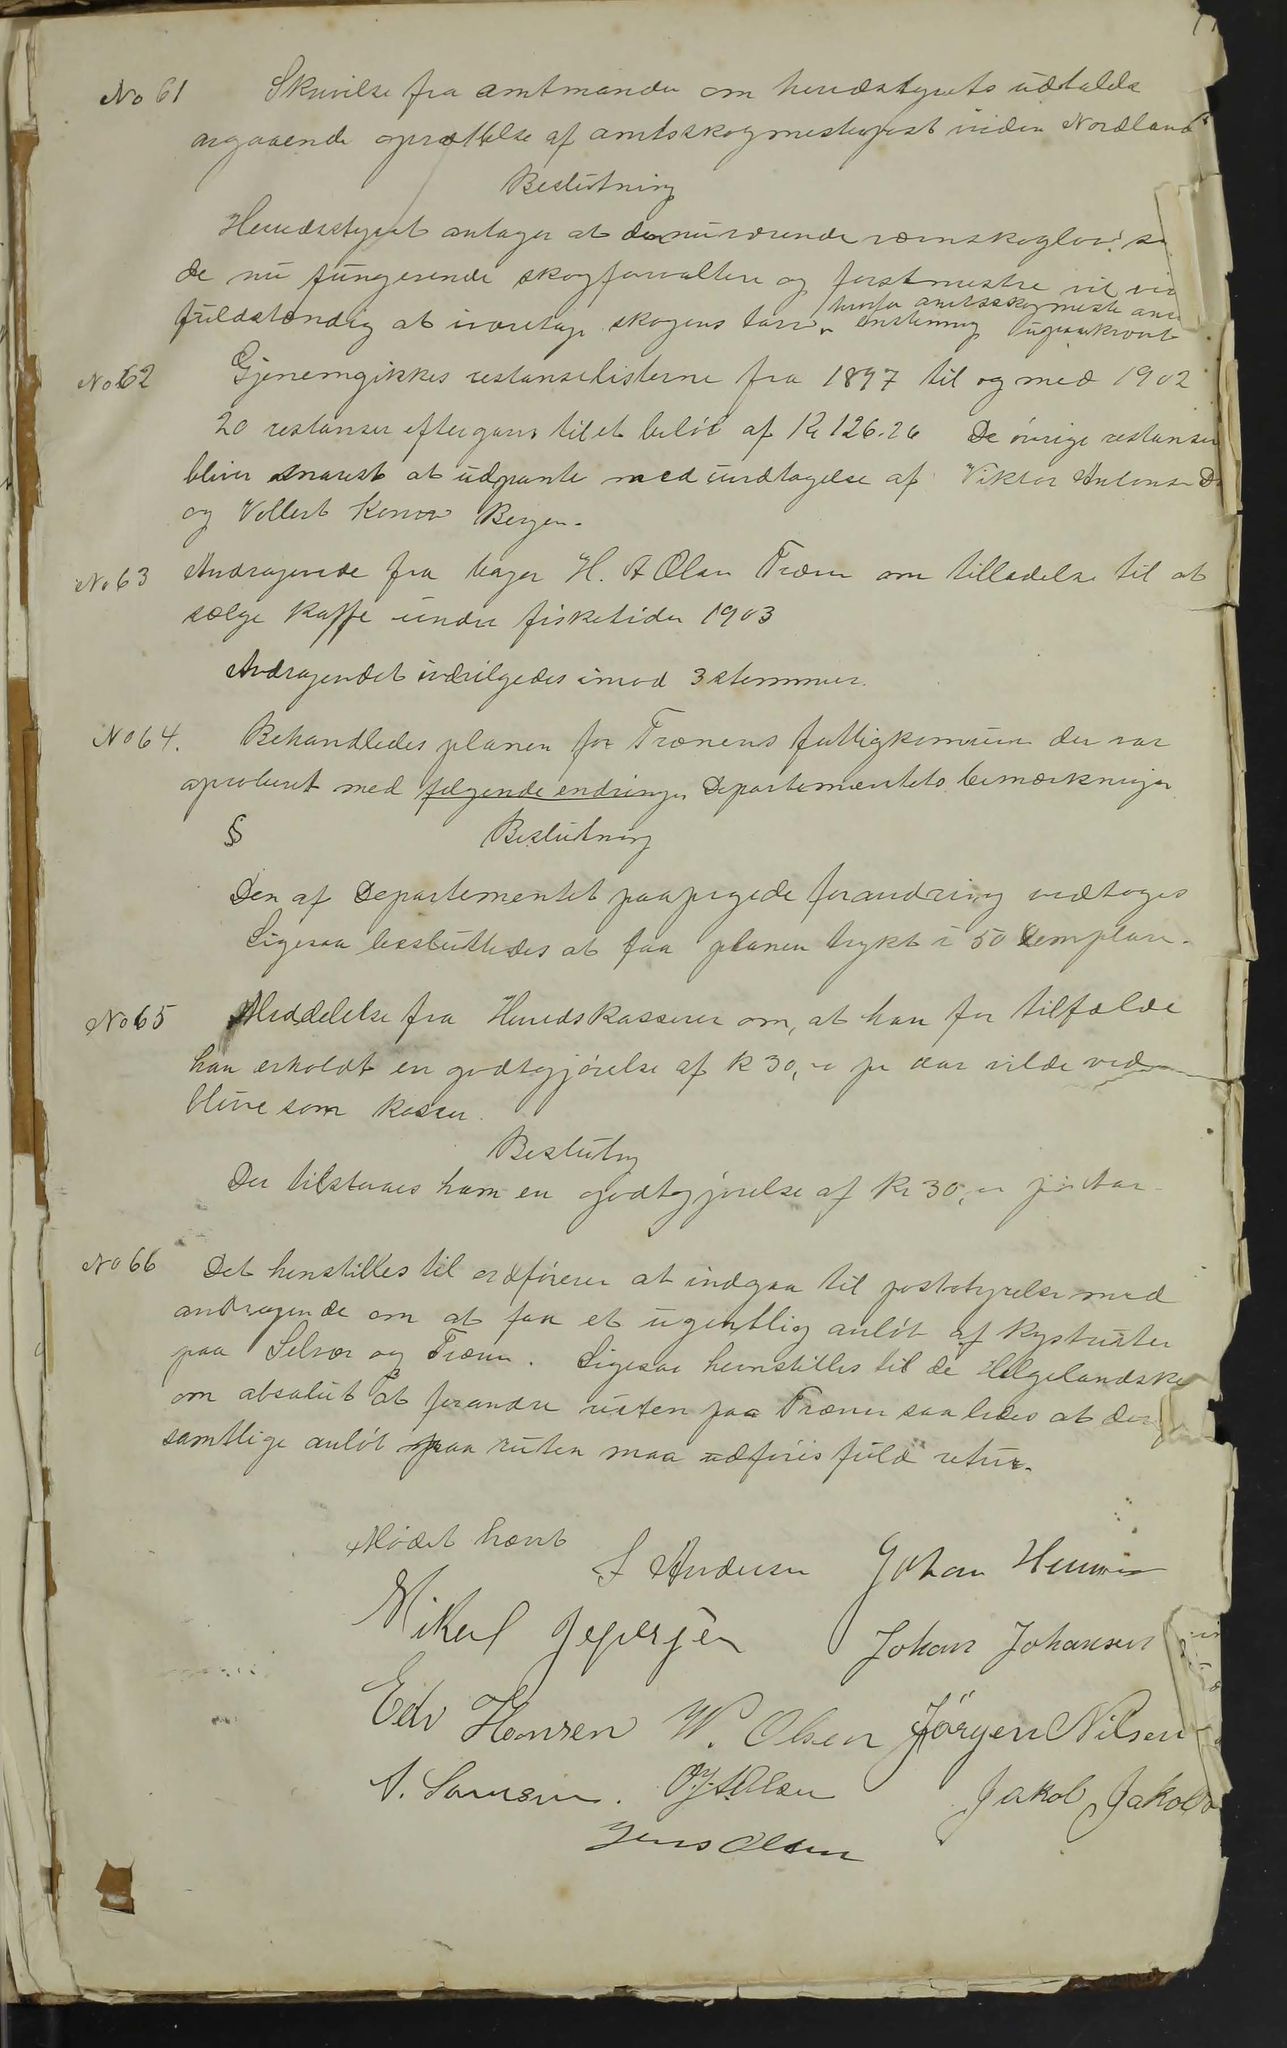 No 61 Skrivelse fra amtmanden om herredstyrets udtalelse
angaaende oprættelse af amtsskogmesterpost inden Nordland
Beslutning
Herredsstyret antager at den nuværende vernskoglov
de nu fungerende skogforvaltere og forstmestre vil
hvorfor amtsskogmester
fuldstændig at ivaretage skogens tarv
No 62 Gjenemgikkes restanselisterne fra 1897 til og med 1902
20 restanser eftergaves til et beløb af Kr 126.26 De øvrige restanser
bliver snarest at udpante med undtagelse af Viktor Antonsen
og Vollert Konow Bergen.
No 63 Andragende fra bager H. A Olsen Træen om tilladelse til at
sælge Kaffe under fisketiden 1903
Andragendet indvilgedes imod 3 stemmer.
No 64. Behandledes planen for Trænens fattigkomune der var
aproberet med følgende endringer Departementets bemærkninger
§ Beslutning
Den af Departementet paapegede forandring vedtoges
Ligesaa besluttedes at faa planen trykt i 50 exemplare.
No 65 Meddelelse fra Herredskasserer om, at han for tilfælde
han erholdt en godtgjørelse af K 30,00 pr aar vilde ved
blive som Kasser.
Beslutng
Der tilstaaes ham en godtgjørelse af Kr 30,00 pr aar.
No 66 Det henstilles til ordføreren at indgaa til poststyrelsen med
andragende om at faa et ugentlig anløb af Kystruten
paa Selvær og Træen. Ligesaa hemstilles til de Helgelandske
om absolut at forandre ruten paa Trænen saaledes at der
samtlige anløb paa ruten maa udføres fuld retur.
Mødet hævt
S Andersen Johan Hemmin
Mikal Jespersen Johan Johansen
Edv Hansen W. Olsen Jörgen Nilsen
A. Sørensen. O. J. A. Olsen Jakob Jakob
Jens Olsen